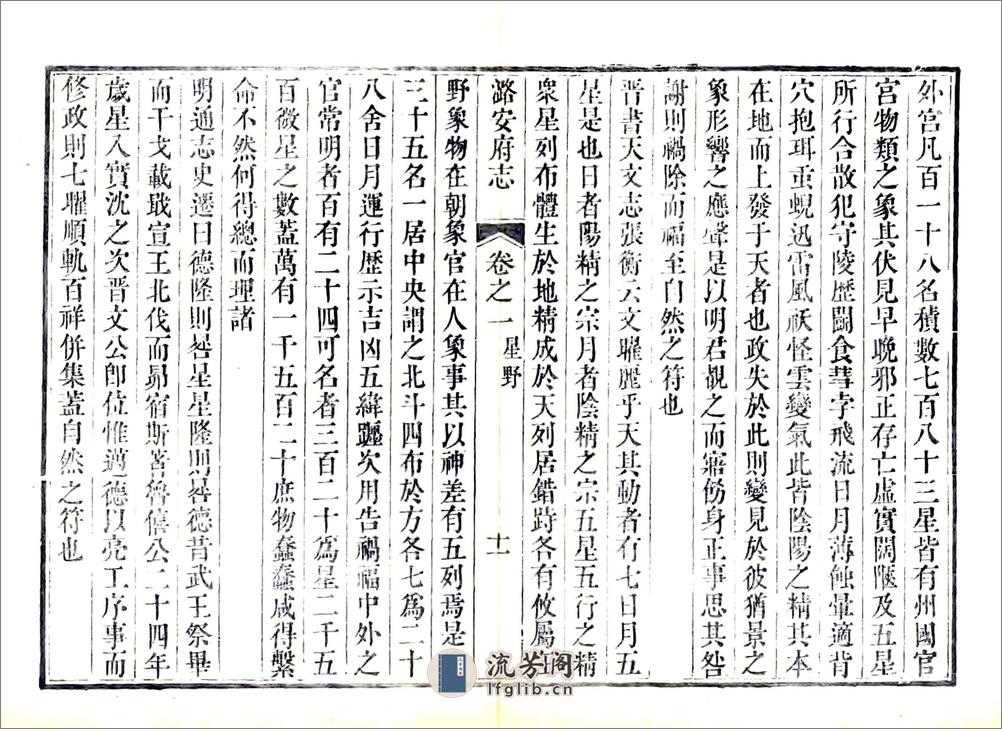 外官凡百一十八名積數七百八十三星皆有州國官
宮物類之象其伏見早晚邪正存亡虛實闊陿及五星
所行合散犯守陵歷鬬食彗孛飛流日月薄蝕暈適背
穴抱珥䖝蜺迅雷風祅怪雲變氣此皆陰陽之精其本
在地而上發于天者也政失於此則變見於彼猶景之
象形響之應聲是以明君覩之而寤飭身正事思其咎
謝則禍除而福至自然之符也
晉書天文志張衡云文曜麗乎天其動者有七日月五
星是也日者陽精之宗月者陰精之宗五星五行之精
衆星列布體生於地精成於天列居錯跱各有攸屬在
潞安府志
卷之一
星野
十一
野象物在朝象官在人象事其以神差有五列焉是
三十五名一居中央謂之北斗四布於方各七爲二十
八舍日月運行歷示吉凶五緯躔次用告禍福中外之
官常明者百有二十四可名者三百二十爲星二千五
百微星之數蓋萬有一千五百二十庶物蠢蠢咸得繫
命不然何得總而理諸
明通志史遷曰德隆則晷星星隆則晷德昔武王祭畢
而干戈載戢宣王北伐而昴宿斯茖魯僖公二十四年
歲星入實沈之次晉文公卽位惟邁德以亮工序事而
修政則七曜順軌百祥併集蓋自然之符也
流芳阁
lfglib.cn